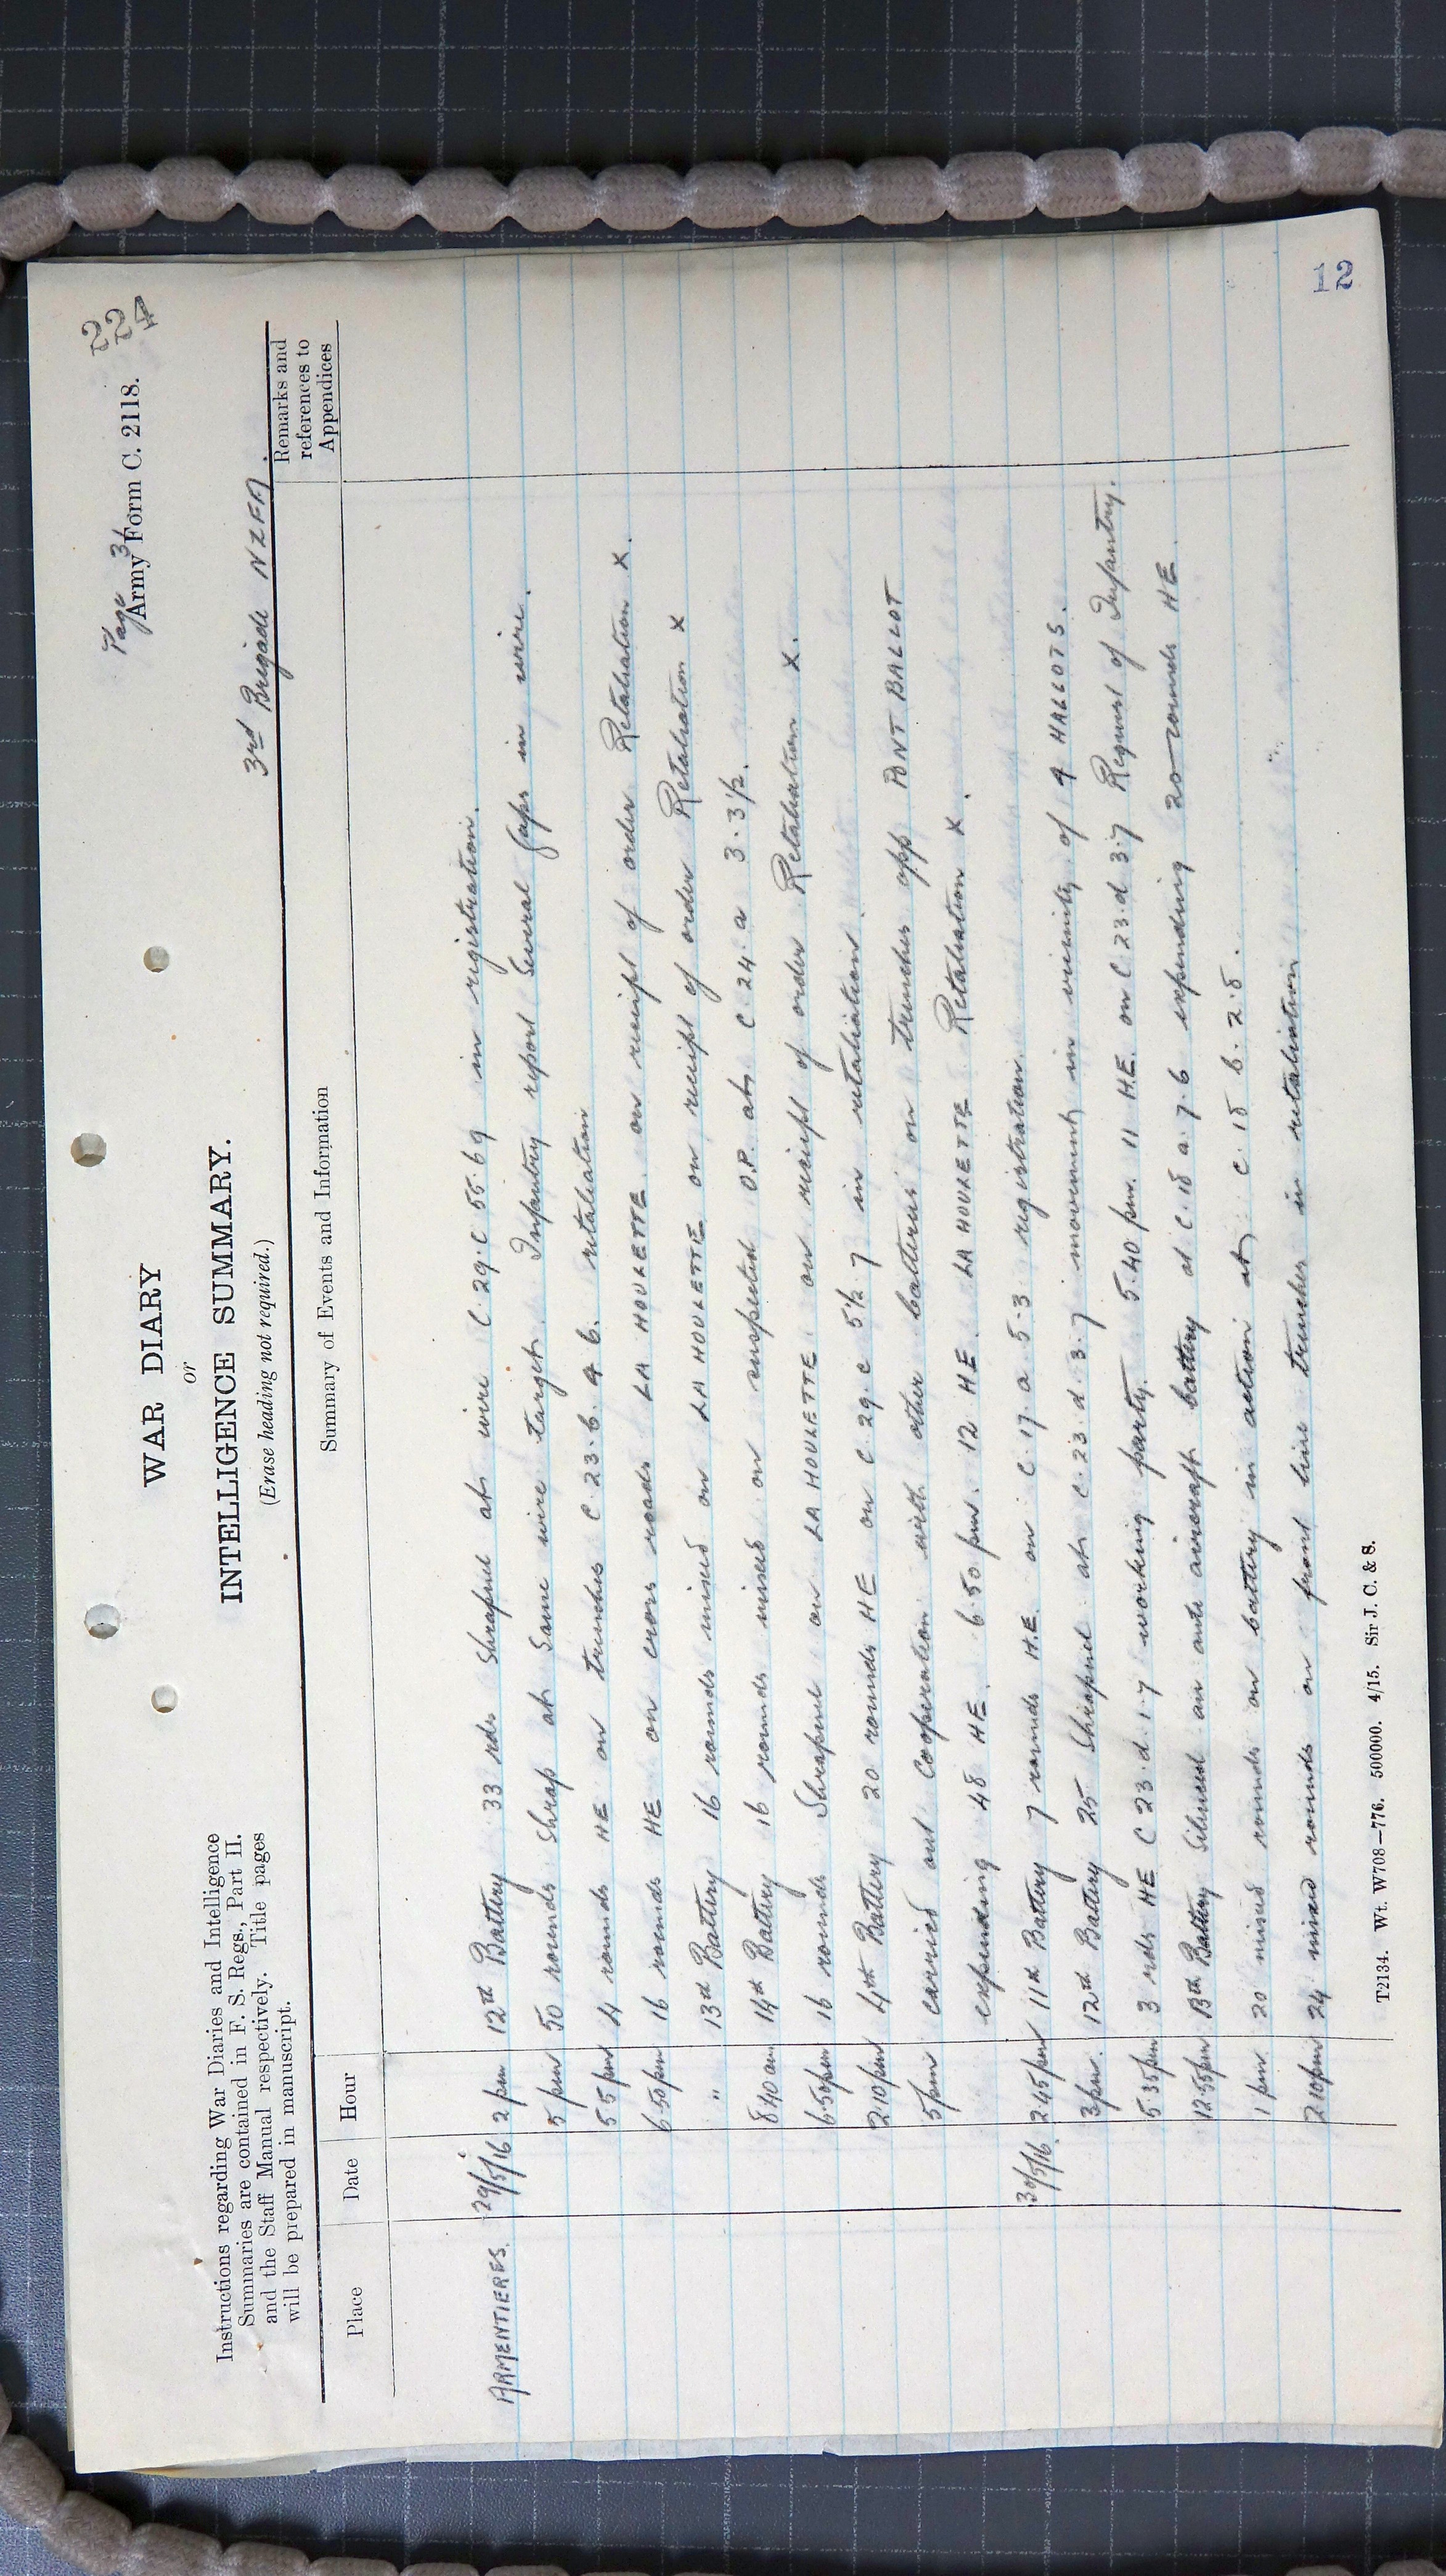 Page 31
224
Army Form C. 2118.
WAR DIARY
or
INTELLIGENCE SUMMARY.
(Erase heading not required.)
3rd Brigade NZFA.
Instructions regarding War Diaries and Intelligence
Summaries are contained in F. S. Regs., Part II.
and the Staff Manual respectively. Title pages
will be prepared in manuscript.
Place Date Hour Summary of Events and Information Remarks and references to Appendices
ARMENTIERES. 29/5/16 2 pm 12th Battery 33 rds Shrapnel at wire C.29.c 55.69 in registration.
5 pm 50 rounds Shrap at same wire target. Infantry report several gaps in wire.
5 55 pm 4 rounds HE on trenches C.23.b.4 6. retaliation
6.50 pm 16 rounds HE on cross roads LA HOULETTE on receipt of order Retaliation X.
" 13th Battery 16 rounds mixed on LA HOULETTE on receipt of order Retaliation X
8.40 am 14th Battery 16 rounds mixed on suspected O.P. at C 24.a 3.3½.
6.50 pm 16 rounds Shrapnel on LA HOULETTE on receipt of order Retaliation X.
2.10 pm 4th Battery 20 rounds HE on C.29.c 5½ 7 in retaliation.
5 pm carried out cooperation with other batteries on trenches opp PONT BALLOT
expending 48 HE. 6.50 pm. 12 HE. LA HOULETTE Retaliation X.
30/5/16. 2.45 pm 11th Battery 7 rounds H.E. on C.17.a 5.3 registration.
3 pm. 12th Battery 25 Shrapnel at C.23.d.3.7 movement in vicinity of 4 HALLOTS.
5.35 pm 3 rds HE C 23.d.1.7 working party. 5.40 pm. 11 H.E. on C 23.d 3.7 Request of Infantry.
12.55 pm 13th Battery Silenced an anti aircraft battery at C.18 a.7.6 expending 20 rounds HE.
1 pm 20 mixed rounds on battery in action at C.18 b.2.8.
2.10 pm 24 mixed rounds on front line trenches in retaliation
T2134. Wt. W708—776. 500000. 4/15. Sir J. C. & S.
12